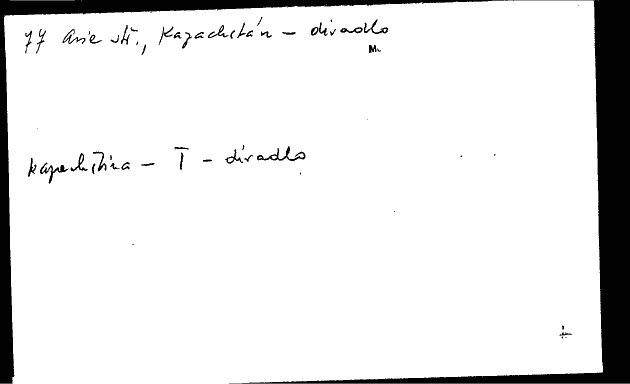 77 Asie stř., Kazachstán - divadlo
M.
kazachština - T - divadlo